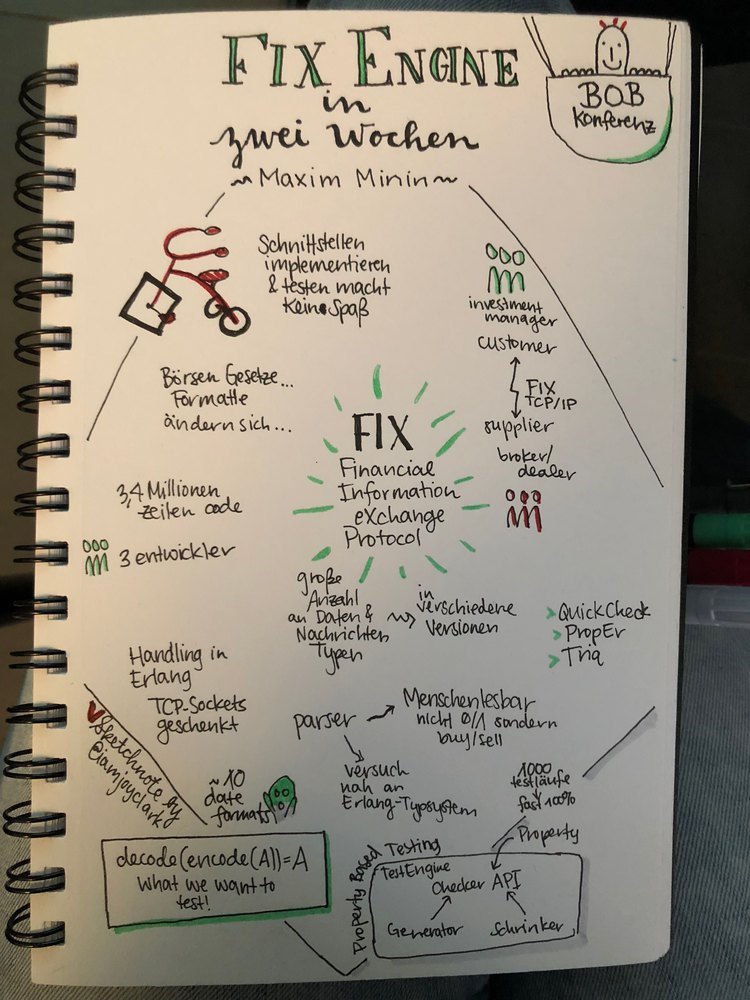 FIX ENGINE
in
zwei Wochen
~ Maxim Minin ~
BOB
Konferenz
Schnittstellen
implementieren
& testen macht
Keine Spaß
investment
manager
customer
FIX
TCP/IP
supplier
broker/
dealer
Börsen Gesetze...
Formatte
ändern sich...
FIX
Financial
Information
eXchange
Protocol
3,4 Millionen
Zeilen code
3 entwickler
große
Anzahl
an Daten &
Nachrichten
Typen
in
verschiedene
Versionen
> QuickCheck
> PropEr
> Triq
Handling in
Erlang
TCP-Sockets
geschenkt
parser
Menschenlesbar
nicht 0/1 sondern
buy/sell
versuch
nah an
Erlang-Typsystem
Sketchnote by
@iamjoyclark
~10
date
formats
1000
testläufe
fast 100%
decode(encode(A))=A
What we want to
test!
Property Based Testing
TestEngine
Property
Checker API
Generator
Schrinker